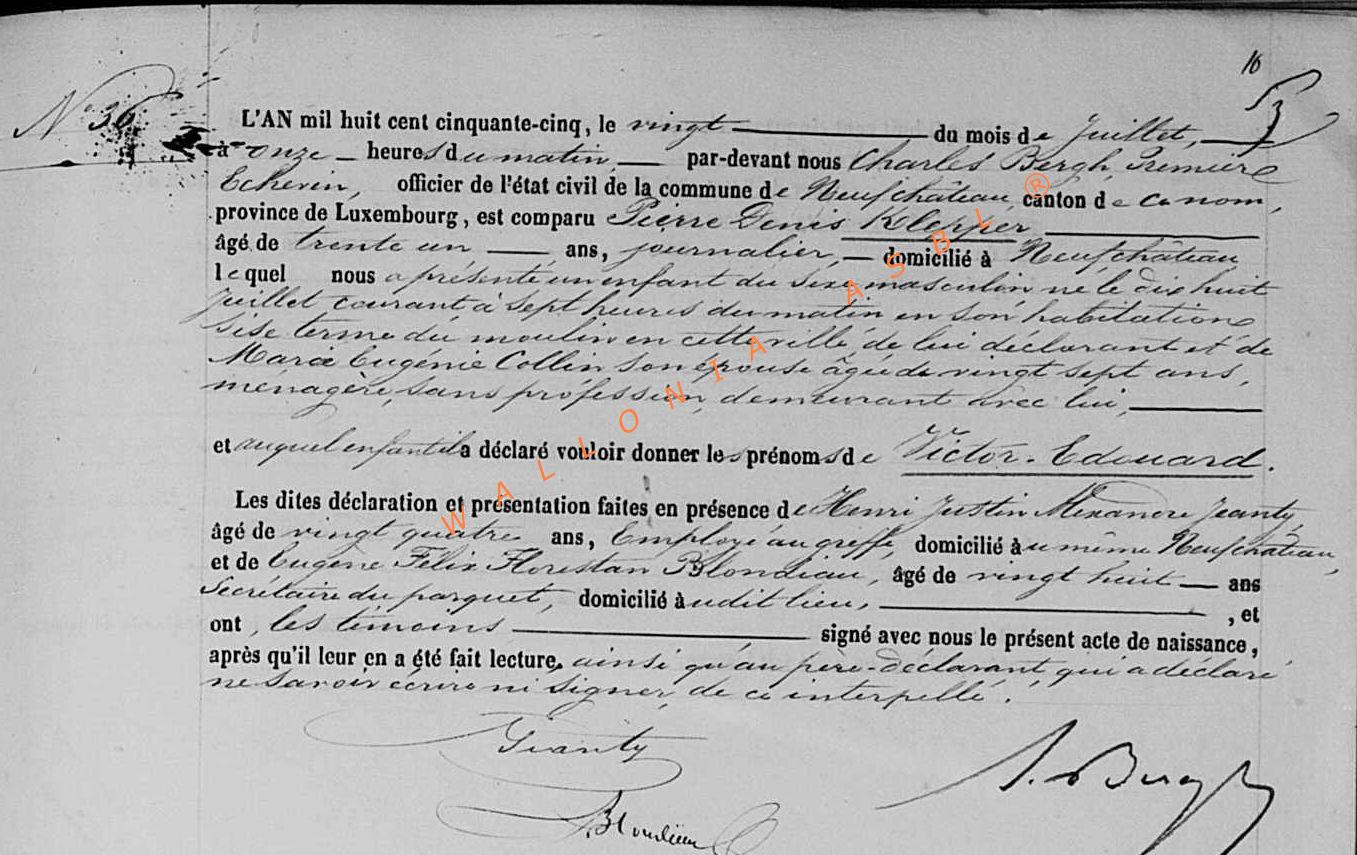 16
N° 36
L'AN mil huit cent cinquante-cinq, le vingt du mois de Juillet,
à onze heures du matin, par-devant nous Charles Bergh, Premier
Echevin, officier de l'état civil de la commune de Neufchâteau, canton de ce nom,
province de Luxembourg, est comparu Pierre Denis Klepper
âgé de trente un ans, journalier, domicilié à Neufchâteau
lequel nous a présenté un enfant du sexe masculin né le dix huit
Juillet courant à sept heures du matin en son habitation
sise terme du moulin en cette ville, de lui déclarant et de
Marie Eugénie Collin son épouse âgée de vingt sept ans,
ménagère, sans profession, demeurant avec lui,
et auquel enfant il a déclaré vouloir donner les prénoms de Victor. Edouard.
Les dites déclaration et présentation faites en présence de Henri Justin Alexandre Jeanty,
âgé de vingt quatre ans, Employé au greffe, domicilié à u même Neufchâteau,
et de Eugène Félix Florestan Blondiau, âgé de vingt huit ans
Secrétaire du parquet, domicilié à udit lieu, , et
ont, les témoins signé avec nous le présent acte de naissance,
après qu'il leur en a été fait lecture, ainsi qu'au père déclarant, qui a déclaré
ne savoir écrire ni signer, de ce interpellé.
Jeanty
Blondiau
Bergh
WALLONIA ASBL ®